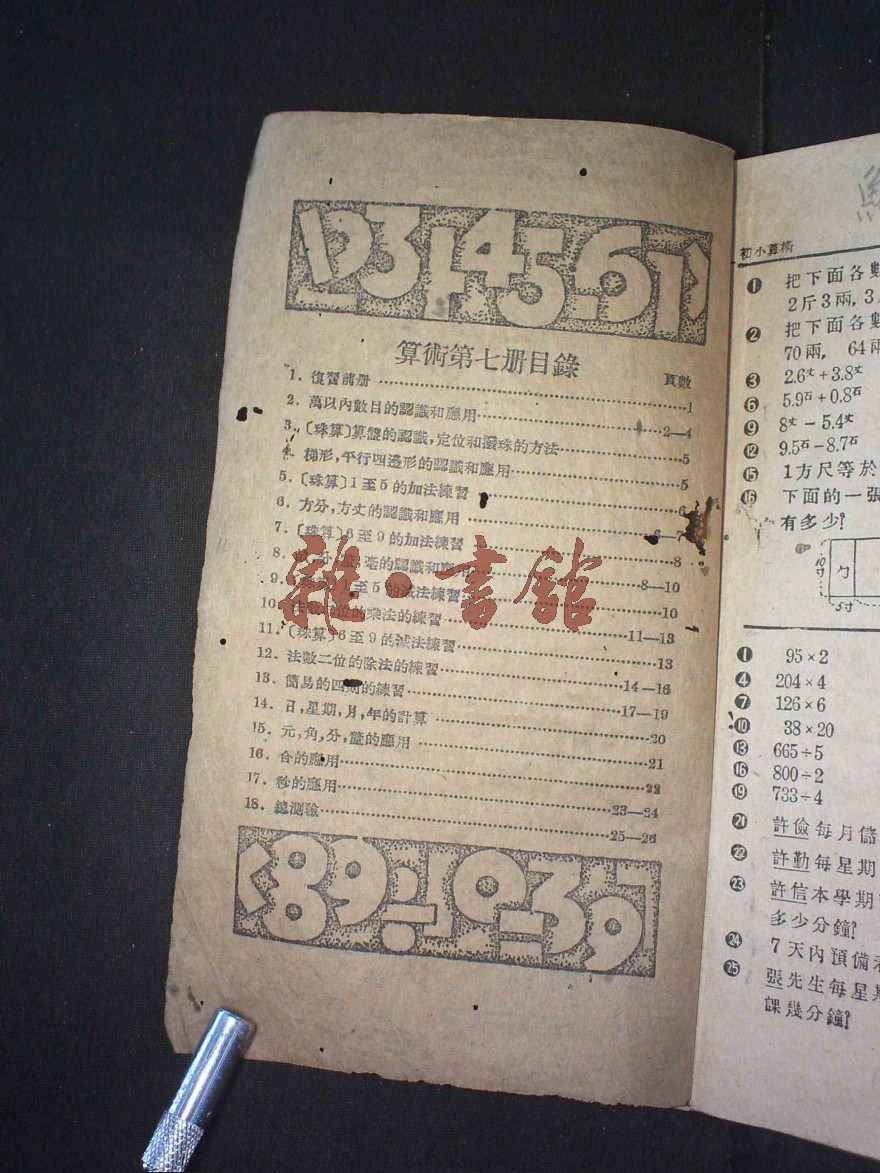 算術第七册目錄
頁數
1. 復習前册……1
2. 萬以內數目的認識和應用……2—4
3. 〔珠算〕算盤的認識,定位和撥珠的方法……5
4. 梯形,平行四邊形的認識和應用……5
5. 〔珠算〕1至5的加法練習……6
6. 方分,方丈的認識和應用……6—7
7. 〔珠算〕6至9的加法練習……8
8. 毫的認識和應用……8—10
9. 1至5的減法練習……10
10. 位的乘法的練習……11—13
11. 〔珠算〕6至9的減法練習……13
12. 法數二位的除法的練習……14—16
13. 簡易的四則的練習……17—19
14. 日,星期,月,年的計算……20
15. 元,角,分,釐的應用……21
16. 合的應用……22
17. 秒的應用……23—24
18. 總測驗……25—26
雜·書館
初小算術
❶ 把下面各數
2斤3兩, 3
❷ 把下面各數
70兩, 64兩
❸ 2.6丈+3.8丈
❻ 5.9石+0.8石
❾ 8丈-5.4丈
⓬ 9.5石-8.7石
⓯ 1方尺等於
⓰ 下面的一張
有多少?
10寸
勺
5寸
❶ 95×2
❹ 204×4
❼ 126×6
❿ 38×20
⓭ 665÷5
⓰ 800÷2
⓳ 733÷4
㉑ 許儉每月儲
㉒ 許勤每星期
㉓ 許信本學期
多少分鐘?
㉔ 7天內預備
㉕ 張先生每星期
課幾分鐘?